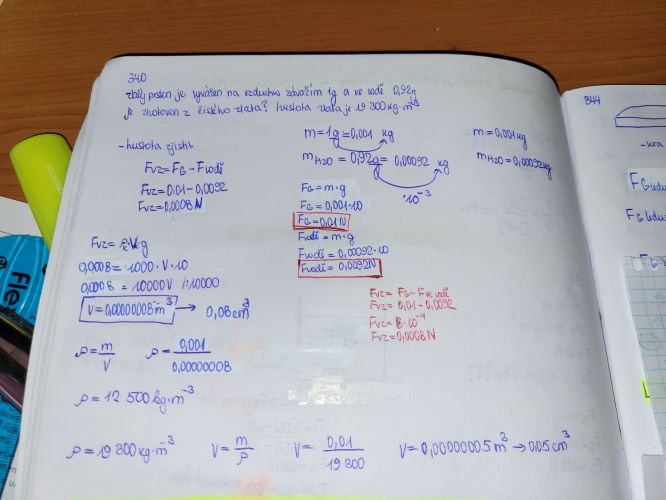 340
zlatý prsten je vyvážen na vzduchu závažím 1g a ve vodě 0,92g
je zhotoven z čistého zlata? hustota zlata je 19 300 kg·m⁻³
-hustota zjistit
Fvz = FG - Fvodě
Fvz = 0,01 - 0,0092
Fvz = 0,0008 N
m = 1g = 0,001 kg
mH2O = 0,92g = 0,00092 kg
·10⁻³
FG = m·g
FG = 0,001·10
FG = 0,01N
Fvodě = m·g
Fvodě = 0,00092·10
Fvodě = 0,0092N
m = 0,001kg
mH2O = 0,00092kg
0,0008 = 1000·V·10
0,0008 = 10000V /:10000
V = 0,00000008 m³ → 0,08cm³
Fvz = FG - Fve vodě
Fvz = 0,01 - 0,0092
Fvz = 8·10⁻⁴
Fvz = 0,0008N
ρ = m/V ρ = 0,001/0,00000008
ρ = 12 500 kg·m⁻³
ρ = 19 300 kg·m⁻³ V = m/ρ V = 0,01/19 300 V = 0,00000005 m³ → 0,05cm³
344
FG
Fle